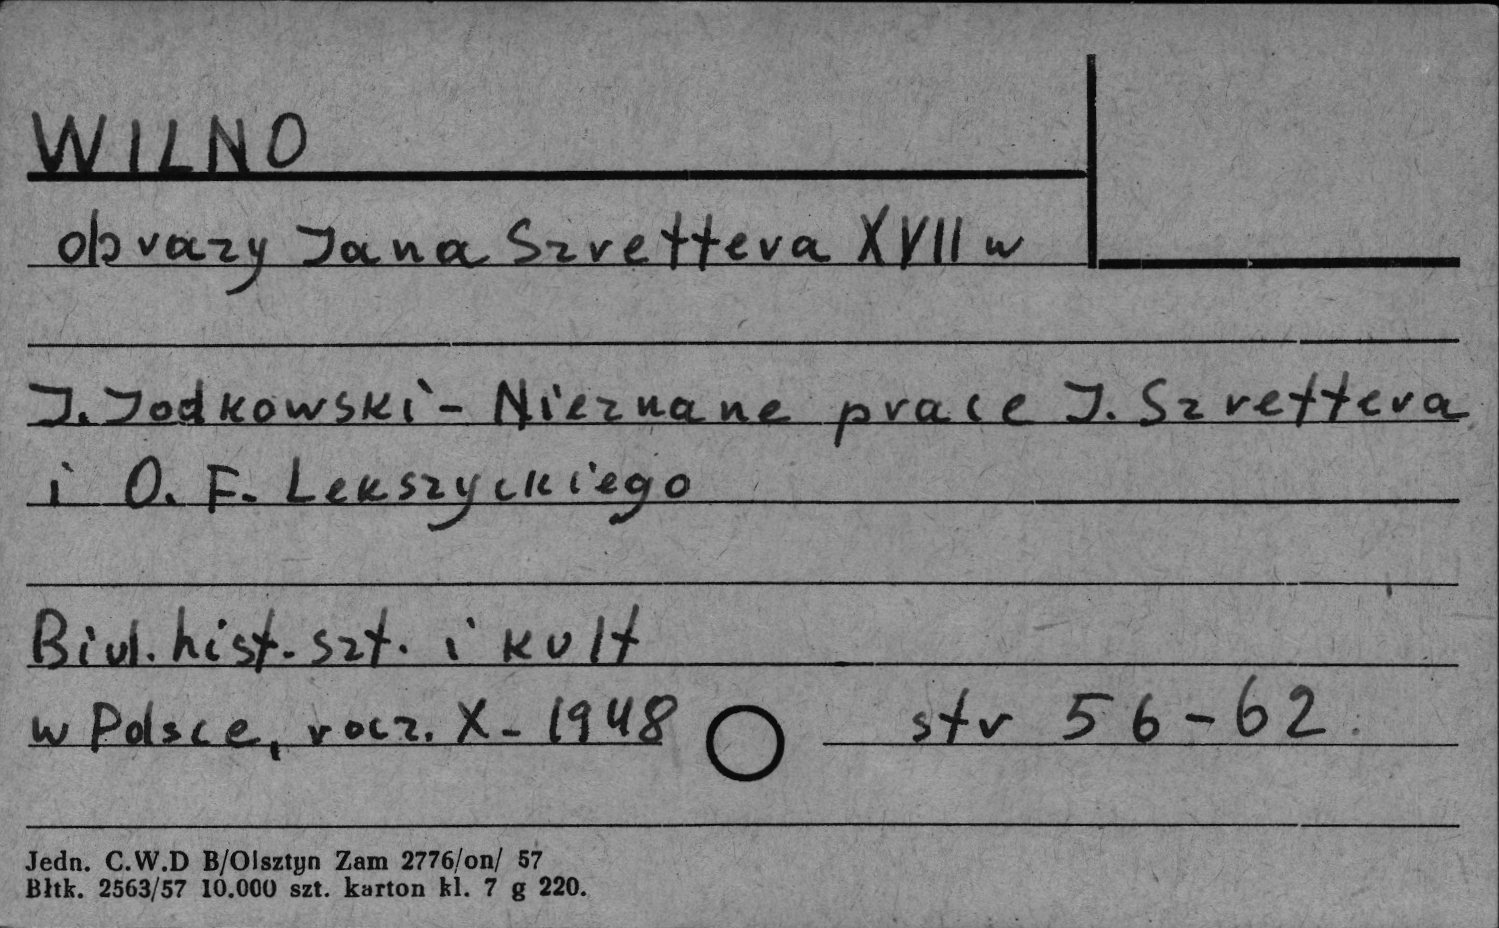 WILNO
obrazy Jana Szrettera XVII w
J. Jodkowski - Nieznane prace J. Szrettera
i O. F. Lekszyckiego
Biul. hist. szt. i kult
w Polsce, rocz. X - 1948 str 56-62.
Jedn. C.W.D B/Olsztyn Zam 2776/on/ 57
Błtk. 2563/57 10.000 szt. karton kl. 7 g 220.